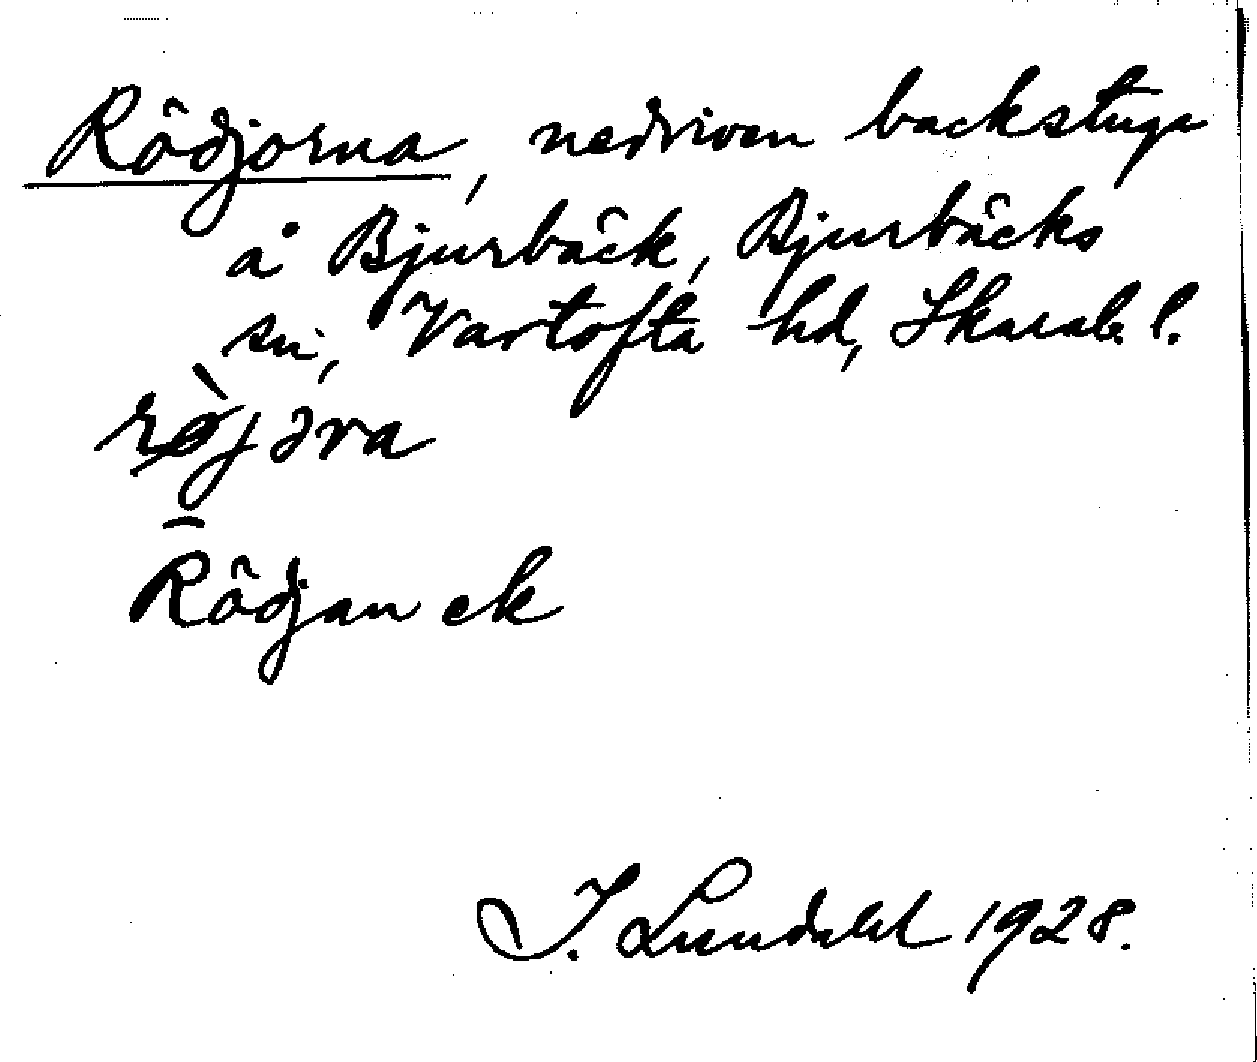 Rödjorna, nedriven backstuga
å Bjurbäck, Bjurbäcks
sn, Vartofta hd, Skarab. l.
rø̀jəra
Rödjan ek
I. Lundahl 1928.